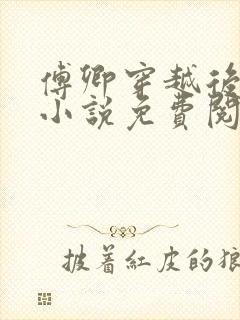 傅卿穿越後
小說免費閱
披着紅皮的狼